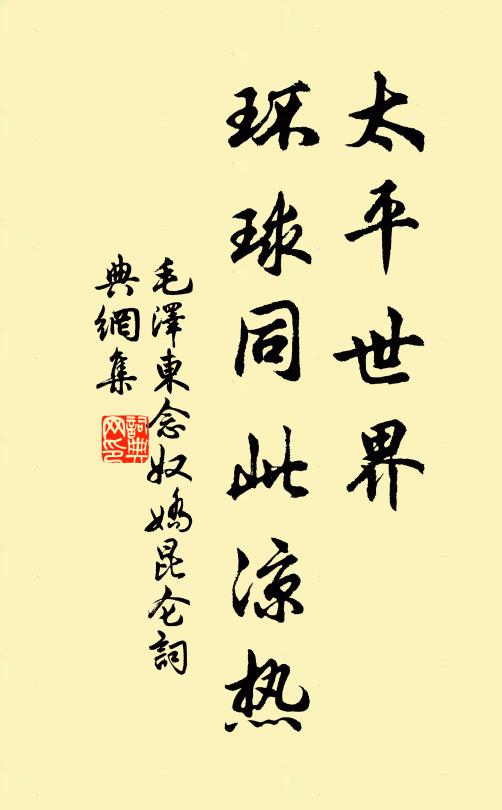 太平世界
环球同此凉热
毛澤東念奴嬌昆仑詞
典網集
詞典
网印